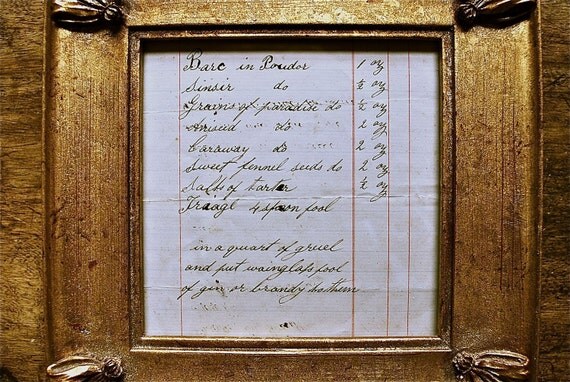 Barc in Poudor 1 oz
Ginsir do ½ oz
Grains of paradise do ½ oz
Aniseed do 2 oz
Caraway do 2 oz
Sweet fennel seeds do 2 oz
Salts of tarter ½ oz
Treagl 4 spoon fool
in a quart of gruel
and put wainglass fool
of gin or brandy to them